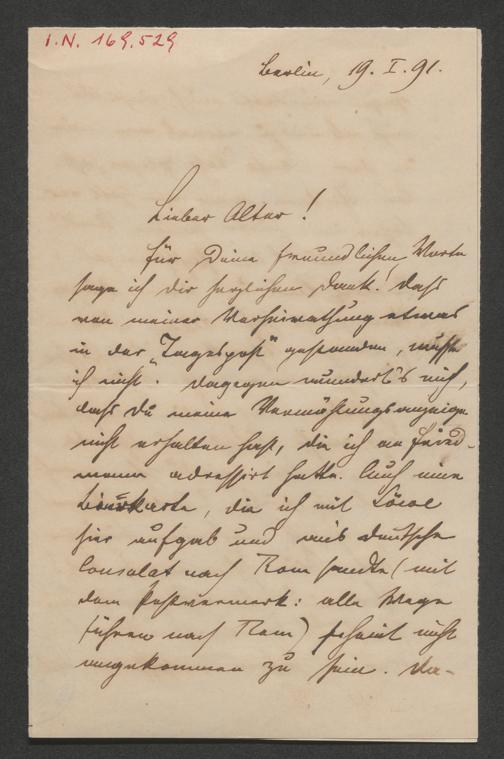 I.N. 169.529
Berlin, 19. I. 91.
Lieber Alter!
Für Deine freundlichen Worte
sage ich dir herzlichen Dank! Daß
von meiner Verheirathung etwas
in der „Tagespost“ gestanden, wußte
ich nicht. Dagegen wundert's mich,
daß Du meine Vermählungsanzeige
nicht erhalten hast, die ich an Fried-
mann adressirt hatte. Auch eine
, die ich mit
hier aufgab und ans deutsche
Consulat nach Rom sandte (mit
dem Postvermerk: alle Wege
führen nach Rom) scheint nicht
angekommen zu sein. Da-